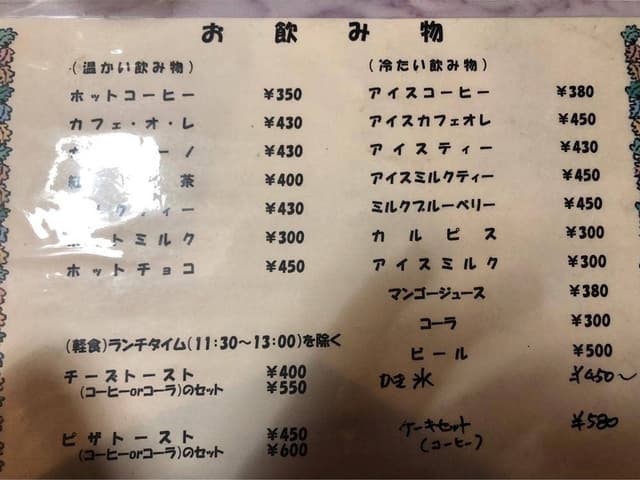 お飲み物
(温かい飲み物)
ホットコーヒー ¥350
カフェ・オ・レ ¥430
ーノ ¥430
紅茶 ¥400
ルクティー ¥430
ットミルク ¥300
ホットチョコ ¥450
(軽食)ランチタイム(11:30〜13:00)を除く
チーズトースト ¥400
(コーヒーorコーラ)のセット ¥550
ピザトースト ¥450
(コーヒーorコーラ)のセット ¥600
(冷たい飲み物)
アイスコーヒー ¥380
アイスカフェオレ ¥450
アイスティー ¥430
アイスミルクティー ¥450
ミルクブルーベリー ¥450
カルピス ¥300
アイスミルク ¥300
マンゴージュース ¥380
コーラ ¥300
ビール ¥500
かき氷 ¥450〜
ケーキセット ¥580
(コーヒー)